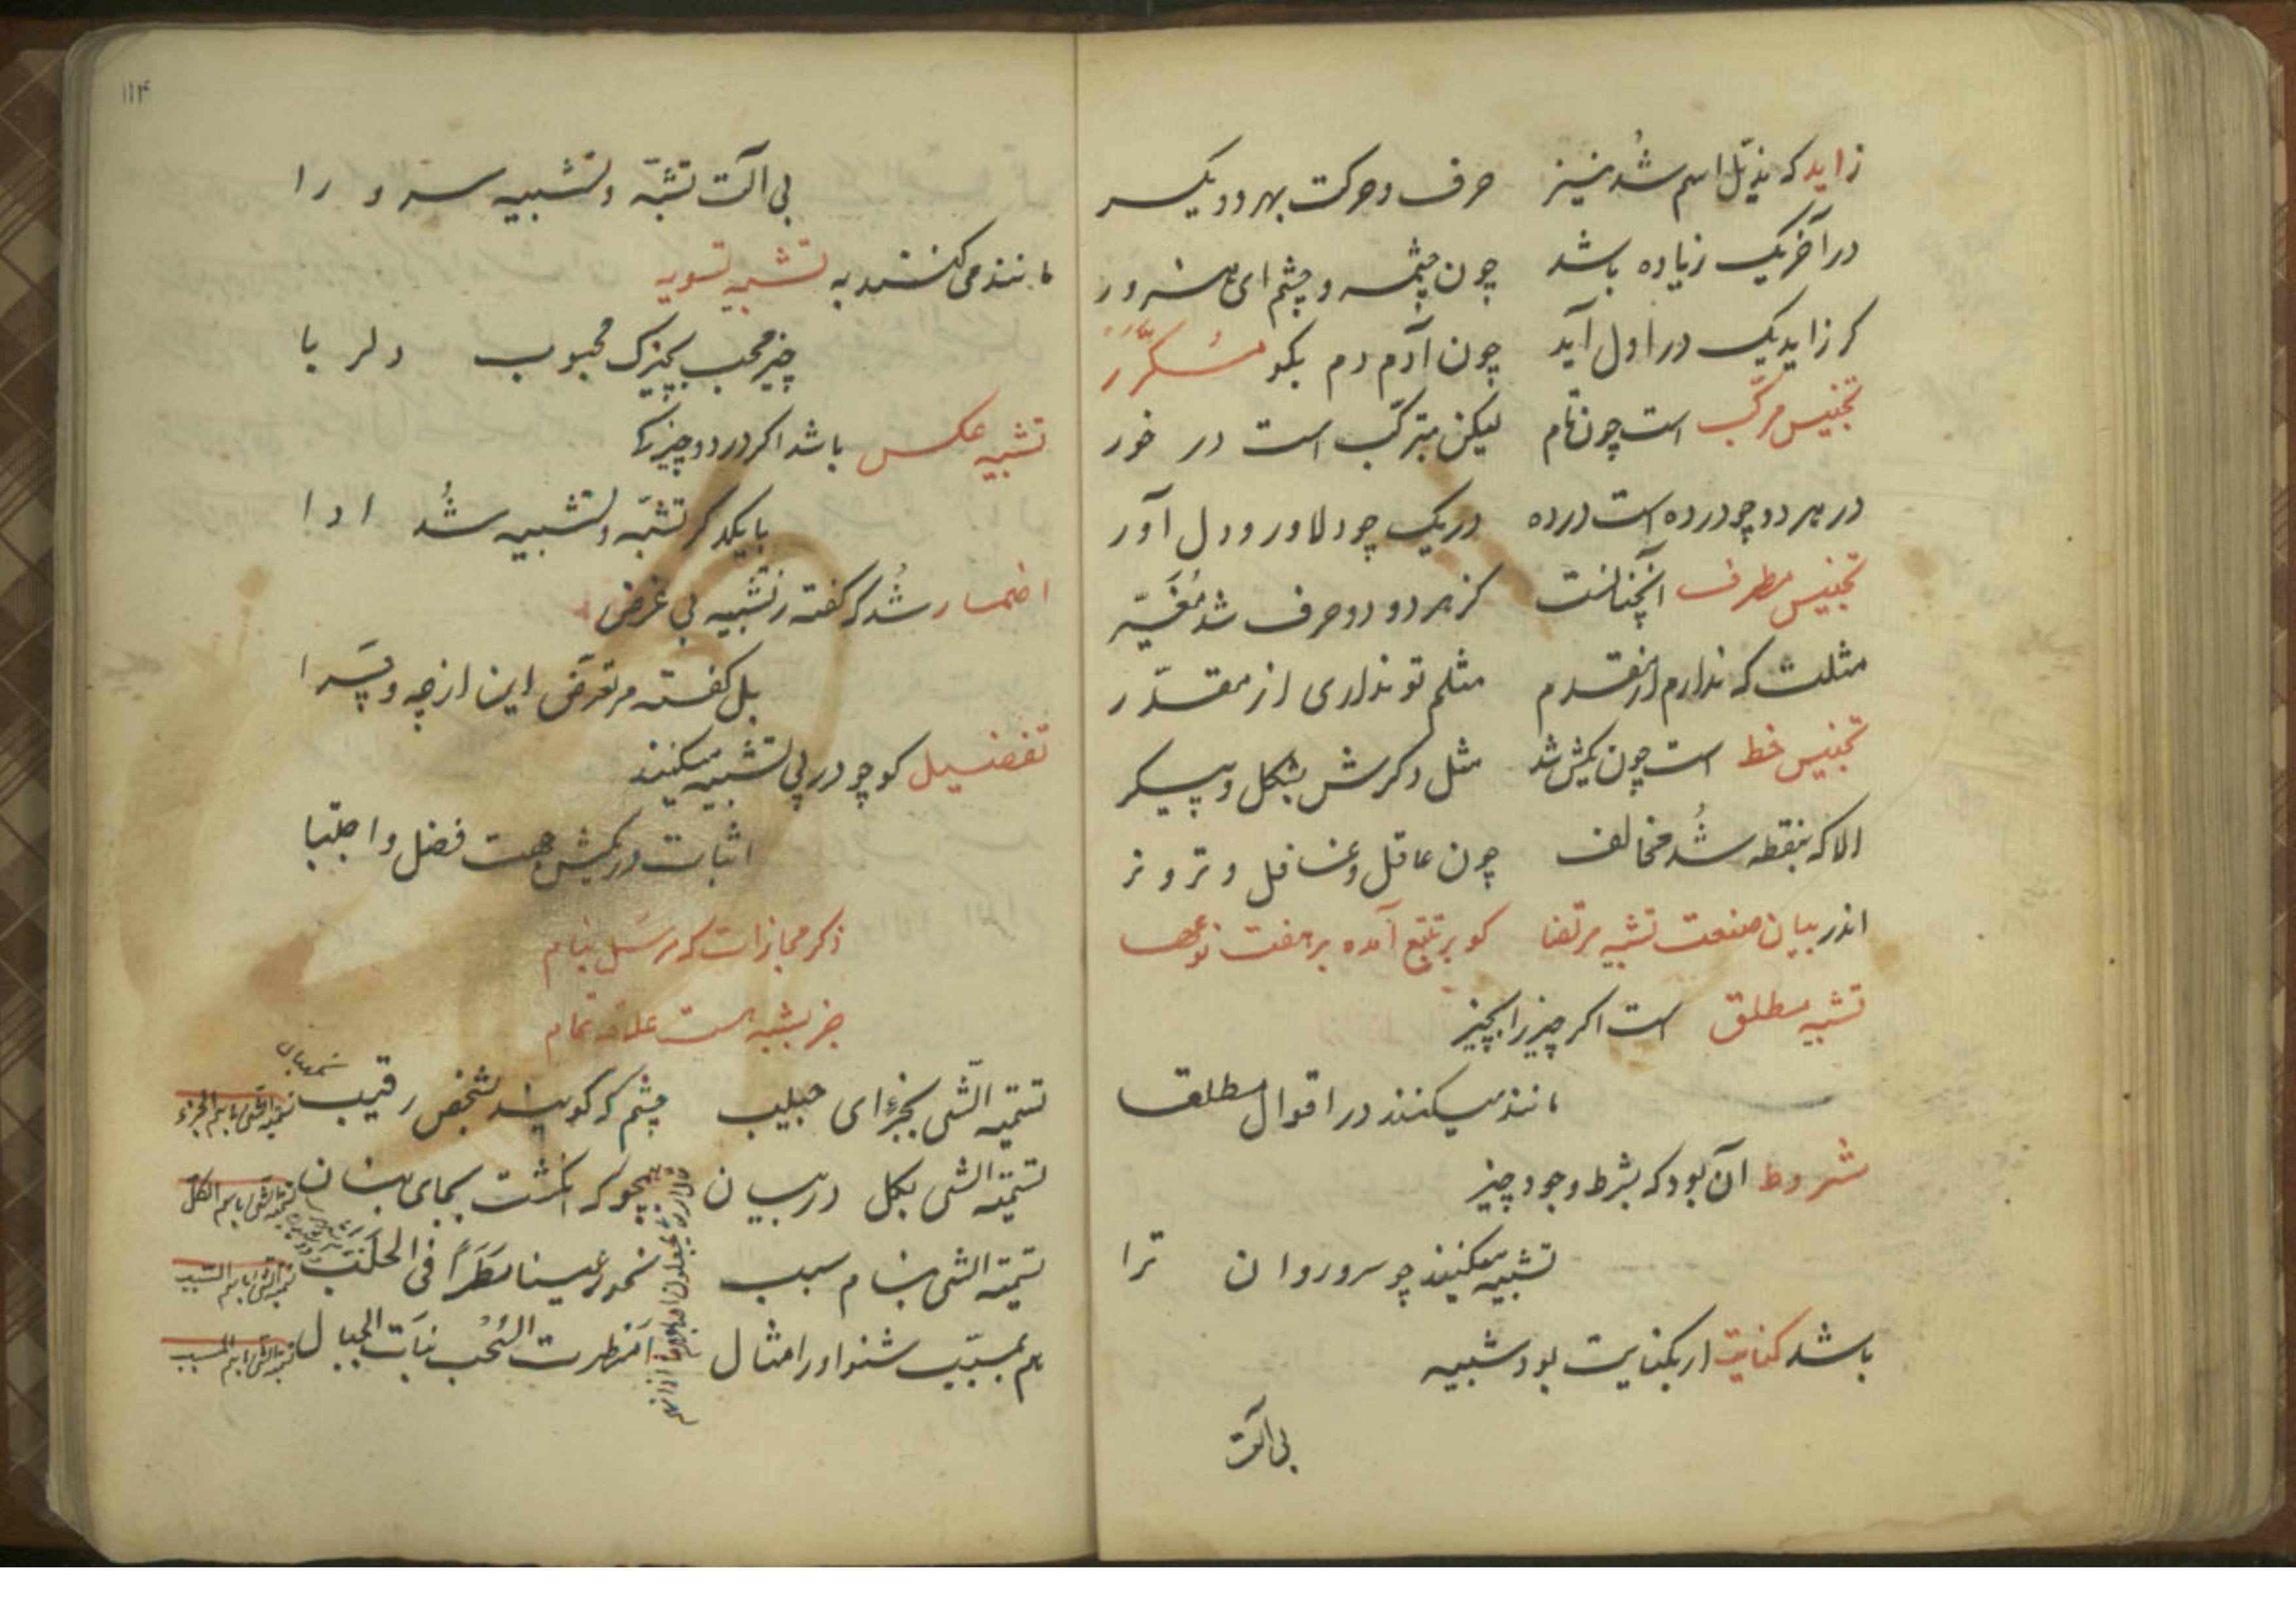 زاید که مذیّل اسم شُد نیز حرف و حرکت بهر دو یکسر
در آخر یک زیاده باشد چون چشمه و چشم ای هنرور
کر زاید یک در اول آید چون آدم دم بکو مُکرَّر
تجنیس مرکّب است چون تام لیکن مترکّب است در خور
در هر دو چو درده است درده در یک چو دلاور و دل آور
تجنیس مطرف آنچنانست کز هر دو دو حرف شد مُغَیّر
مثلت که ندارم از مقدم مثلم تو نداری از مقدّر
تجنیس خط است چون یکیش شد مثل دکرش بشکل و پیکر
الا که بنقطه شُد مخالف چون عاقل و غافل و تر و نر
اندر بیان صنعت تشبیه مرتضا کو بر تتبع آمده بر هفت نوعها
تشبیه مطلق است اکر چیز را بچیز
مانند میکنند در اقوال مطلقا
مشروط آن بود که بشرط وجود چیز
تشبیه میکنند چو سرو روان ترا
باشد کنایت ار بکنایت بود شبیه
بی آلت
۱۱۴
بی آلت تشبّه و تشبیه سرو را
مانند می کنند به تشبیه تسویه
چیز محب بچیزک محبوب دلربا
تشبیه عکس باشد اکر در دو چیزکا
با یکدکر تشبّه و تشبیه شُد ادا
اضمار شُد که کفته ز تشبیه بی غرض
بل کفته مر تعرّض این از چه و چرا
تفضیل کو چو در پی تشبیه میکنند
اثبات در یکیش هست فضل و اجتبا
ذکر مجازات که مرسَل بنام
جز بشبه هست علاقه تمام
تسمیّه الشّی بجزء ای حبیب چشم که کویند بشخص رقیب
تسمیة الشی باسم الجزء
تسمیّه الشی بکل در بیان همچو که انکشت بجای بنان
تسمیة الشی باسم الکل
تسمیّه الشی بنام سبب نحو رعینا مَطَراً فی الحلَب
تسمیة الشی باسم السبب
هم بمسبّب شنو او را مثال امطرت السُحُب نبَات الجبال
تسمیة الشی باسم المسبب